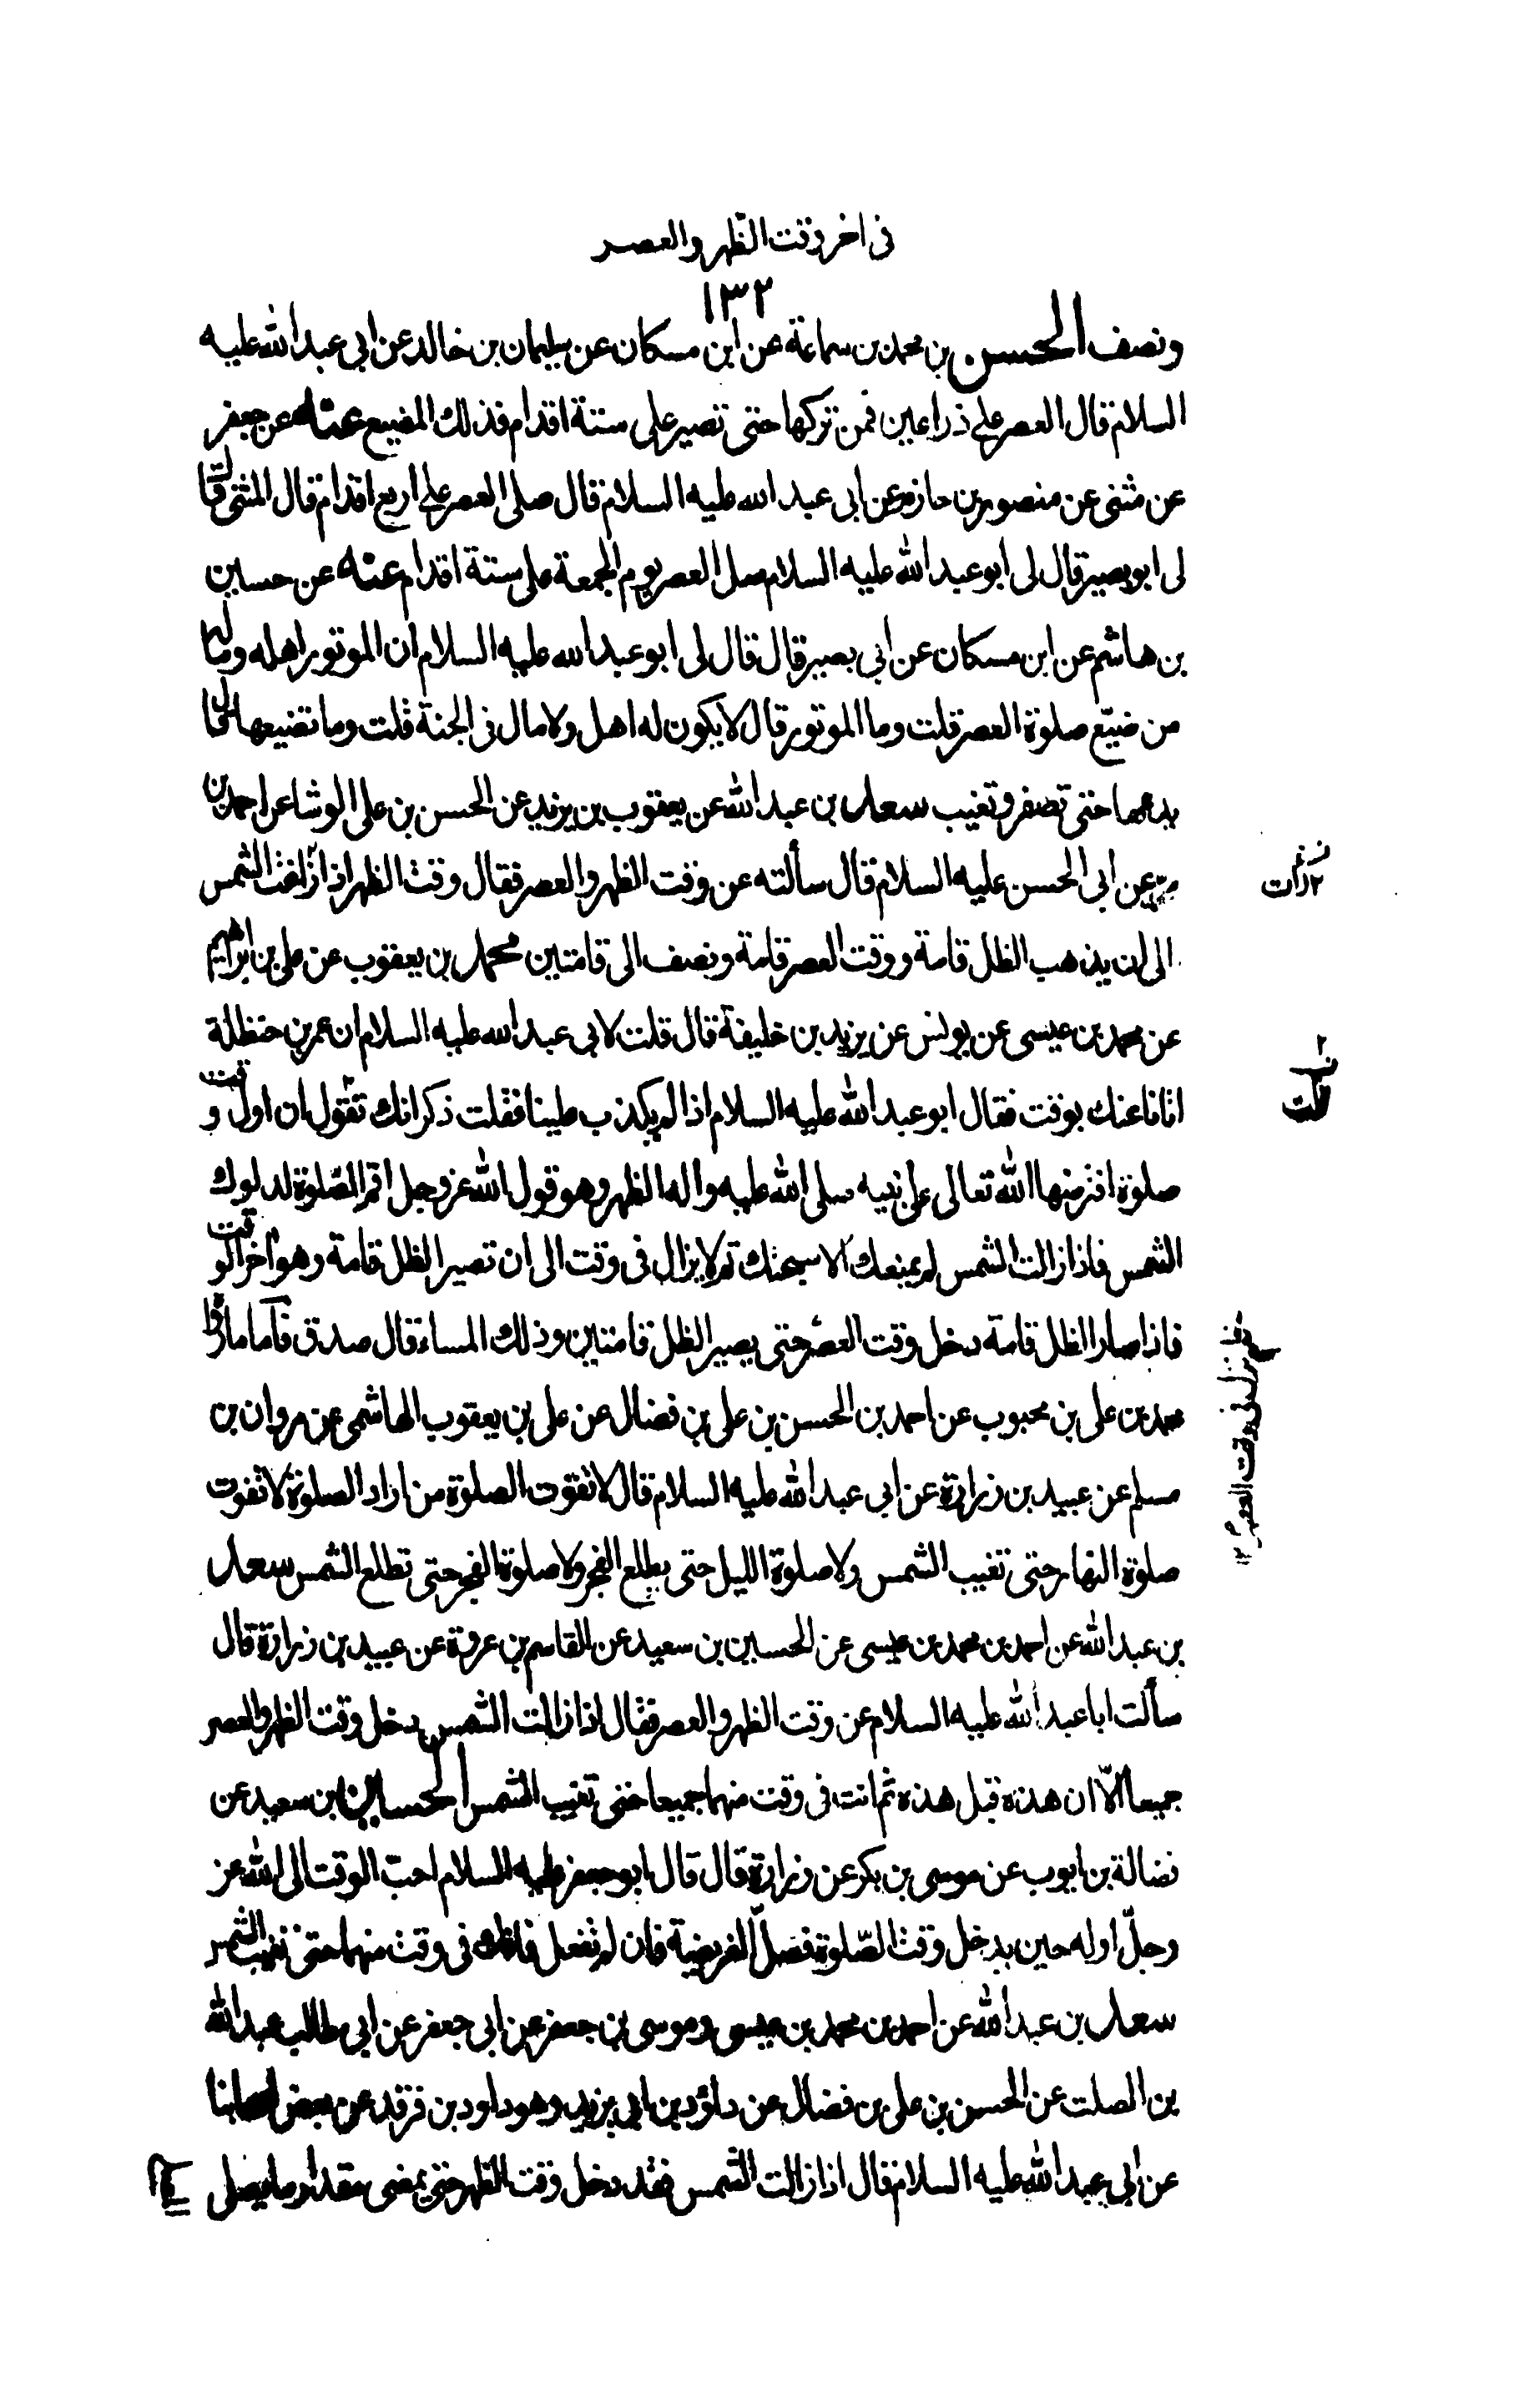 فى اخر وقت الظهر والعصر
١٣٢
ونصف الحسن بن محمد بن سماعة عن ابن مسكان عن سليمان بن خالد عن ابى عبد الله عليه
السلام قال العصر على ذراعين فمن تركها حتى تصير على ستة اقدام فذلك المضيع عنه عن جعفر
عن مثنى عن منصور بن حازم عن ابى عبد الله عليه السلام قال صلى العصر على اربع اقدام قال المثنى قال
لى ابو بصير قال لى ابو عبد الله عليه السلام صل العصر يوم الجمعة على ستة اقدام عنه عن حسين
بن هاشم عن ابن مسكان عن ابى بصير قال قال لى ابو عبد الله عليه السلام ان الموتور اهله وماله
من ضيّع صلوة العصر قلت وما الموتور قال لا يكون له اهل ولا مال فى الجنة قلت وما تضيعها قال
يدعها حتى تصفر وتغيب سعد بن عبد الله عن يعقوب بن يزيد عن الحسن بن على الوشا عن احمد بن
عمر عن ابى الحسن عليه السلام قال سألته عن وقت الظهر والعصر فقال وقت الظهر اذا زاغت الشمس
الى ان يذهب الظل قامة ووقت العصر قامة ونصف الى قامتين محمد بن يعقوب عن على بن ابراهيم
عن محمد بن عيسى عن يونس عن يزيد بن خليفة قال قلت لابى عبد الله عليه السلام ان عمر بن حنظلة
اتانا عنك بوقت فقال ابو عبد الله عليه السلام اذا لم يكذب علينا فقلت ذكر انك تقول ان اول وقت
صلوة افترضها الله تعالى على نبيه صلى الله عليه واله الظهر وهو قول الله عز وجل اقم الصّلوة لدلوك
الشمس فاذا زالت الشمس لم يمنعك الا سبحتك ثم لا يزال فى وقت الى ان تصير الظل قامة وهو آخر الوقت
فاذا صار الظل قامة دخل وقت العصر حتى يصير الظل قامتين وذلك المساء قال صدق فاما ما رواه
محمد بن على بن محبوب عن احمد بن الحسن بن على بن فضال عن على بن يعقوب الهاشمى عن مروان بن
مسلم عن عبيد بن زرارة عن ابى عبد الله عليه السلام قال لا تفوت الصلوة من اراد الصلوة لا تفوت
صلوة النهار حتى تغيب الشمس ولا صلوة الليل حتى يطلع الفجر ولا صلوة الفجر حتى تطلع الشمس سعد
بن عبد الله عن احمد بن محمد بن عيسى عن الحسين بن سعيد عن القاسم بن عروة عن عبيد بن زرارة قال
سألت ابا عبد الله عليه السلام عن وقت الظهر والعصر فقال اذا زالت الشمس دخل وقت الظهر والعصر
جميعا الّا ان هذه قبل هذه ثم انت فى وقت منهما جميعا حتى تغيب الشمس الحسين بن سعيد عن
فضالة بن ايوب عن موسى بن بكر عن زرارة قال قال ابو جعفر عليه السلام احبّ الوقت الى الله عز
وجلّ اوله حين يدخل وقت الصّلوة فصلّ الفريضة فان لم تفعل فانك فى وقت منهما حتى تغيب الشمس
سعد بن عبد الله عن احمد بن محمد بن عيسى وموسى بن جعفر عن ابى جعفر عن ابى طالب عبد الله
بن الصلت عن الحسن بن على بن فضال عن داؤد بن ابى يزيد وهو داود بن فرقد عن بعض اصحابنا
عن ابى عبد الله عليه السلام قال اذا زالت الشمس فقد دخل وقت الظهر حتى يمضى مقدار ما يصلى
زالت
لم يزل فى وقت العصر